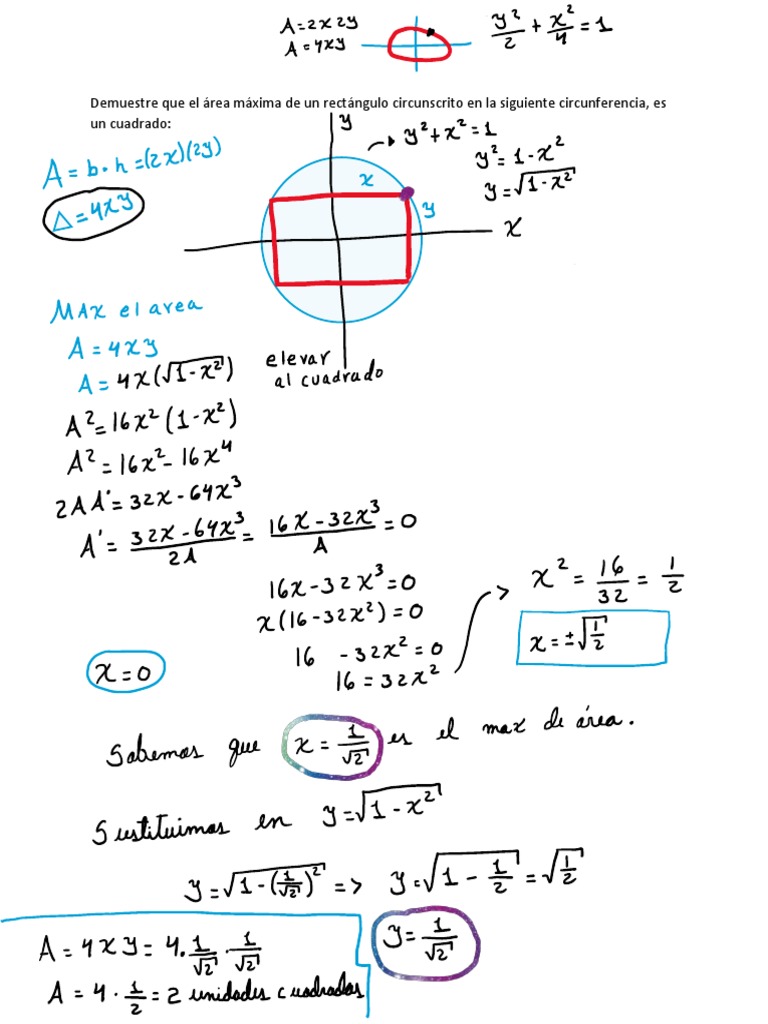 A=2x2y
A=4xy
y²/2 + x²/4 = 1
Demuestre que el área máxima de un rectángulo circunscrito en la siguiente circunferencia, es
un cuadrado:
y
y²+x²=1
y²=1-x²
y=√(1-x²)
A=b·h=(2x)(2y)
△=4xy
x
y
x
MAX el area
A=4xy
A=4x(√(1-x²))
elevar
al cuadrado
A²=16x²(1-x²)
A²=16x²-16x⁴
2AA'=32x-64x³
A'=(32x-64x³)/2A=(16x-32x³)/A=0
16x-32x³=0
x(16-32x²)=0
16 -32x²=0
16=32x²
x=0
x²=16/32=1/2
x=±√(1/2)
Sabemos que x=1/√2 es el max de área.
Sustituimos en y=√(1-x²)
y=√(1-(1/√2)²) => y=√(1-1/2)=√(1/2)
y=1/√2
A=4xy=4·1/√2·1/√2
A=4·1/2=2 unidades cuadradas